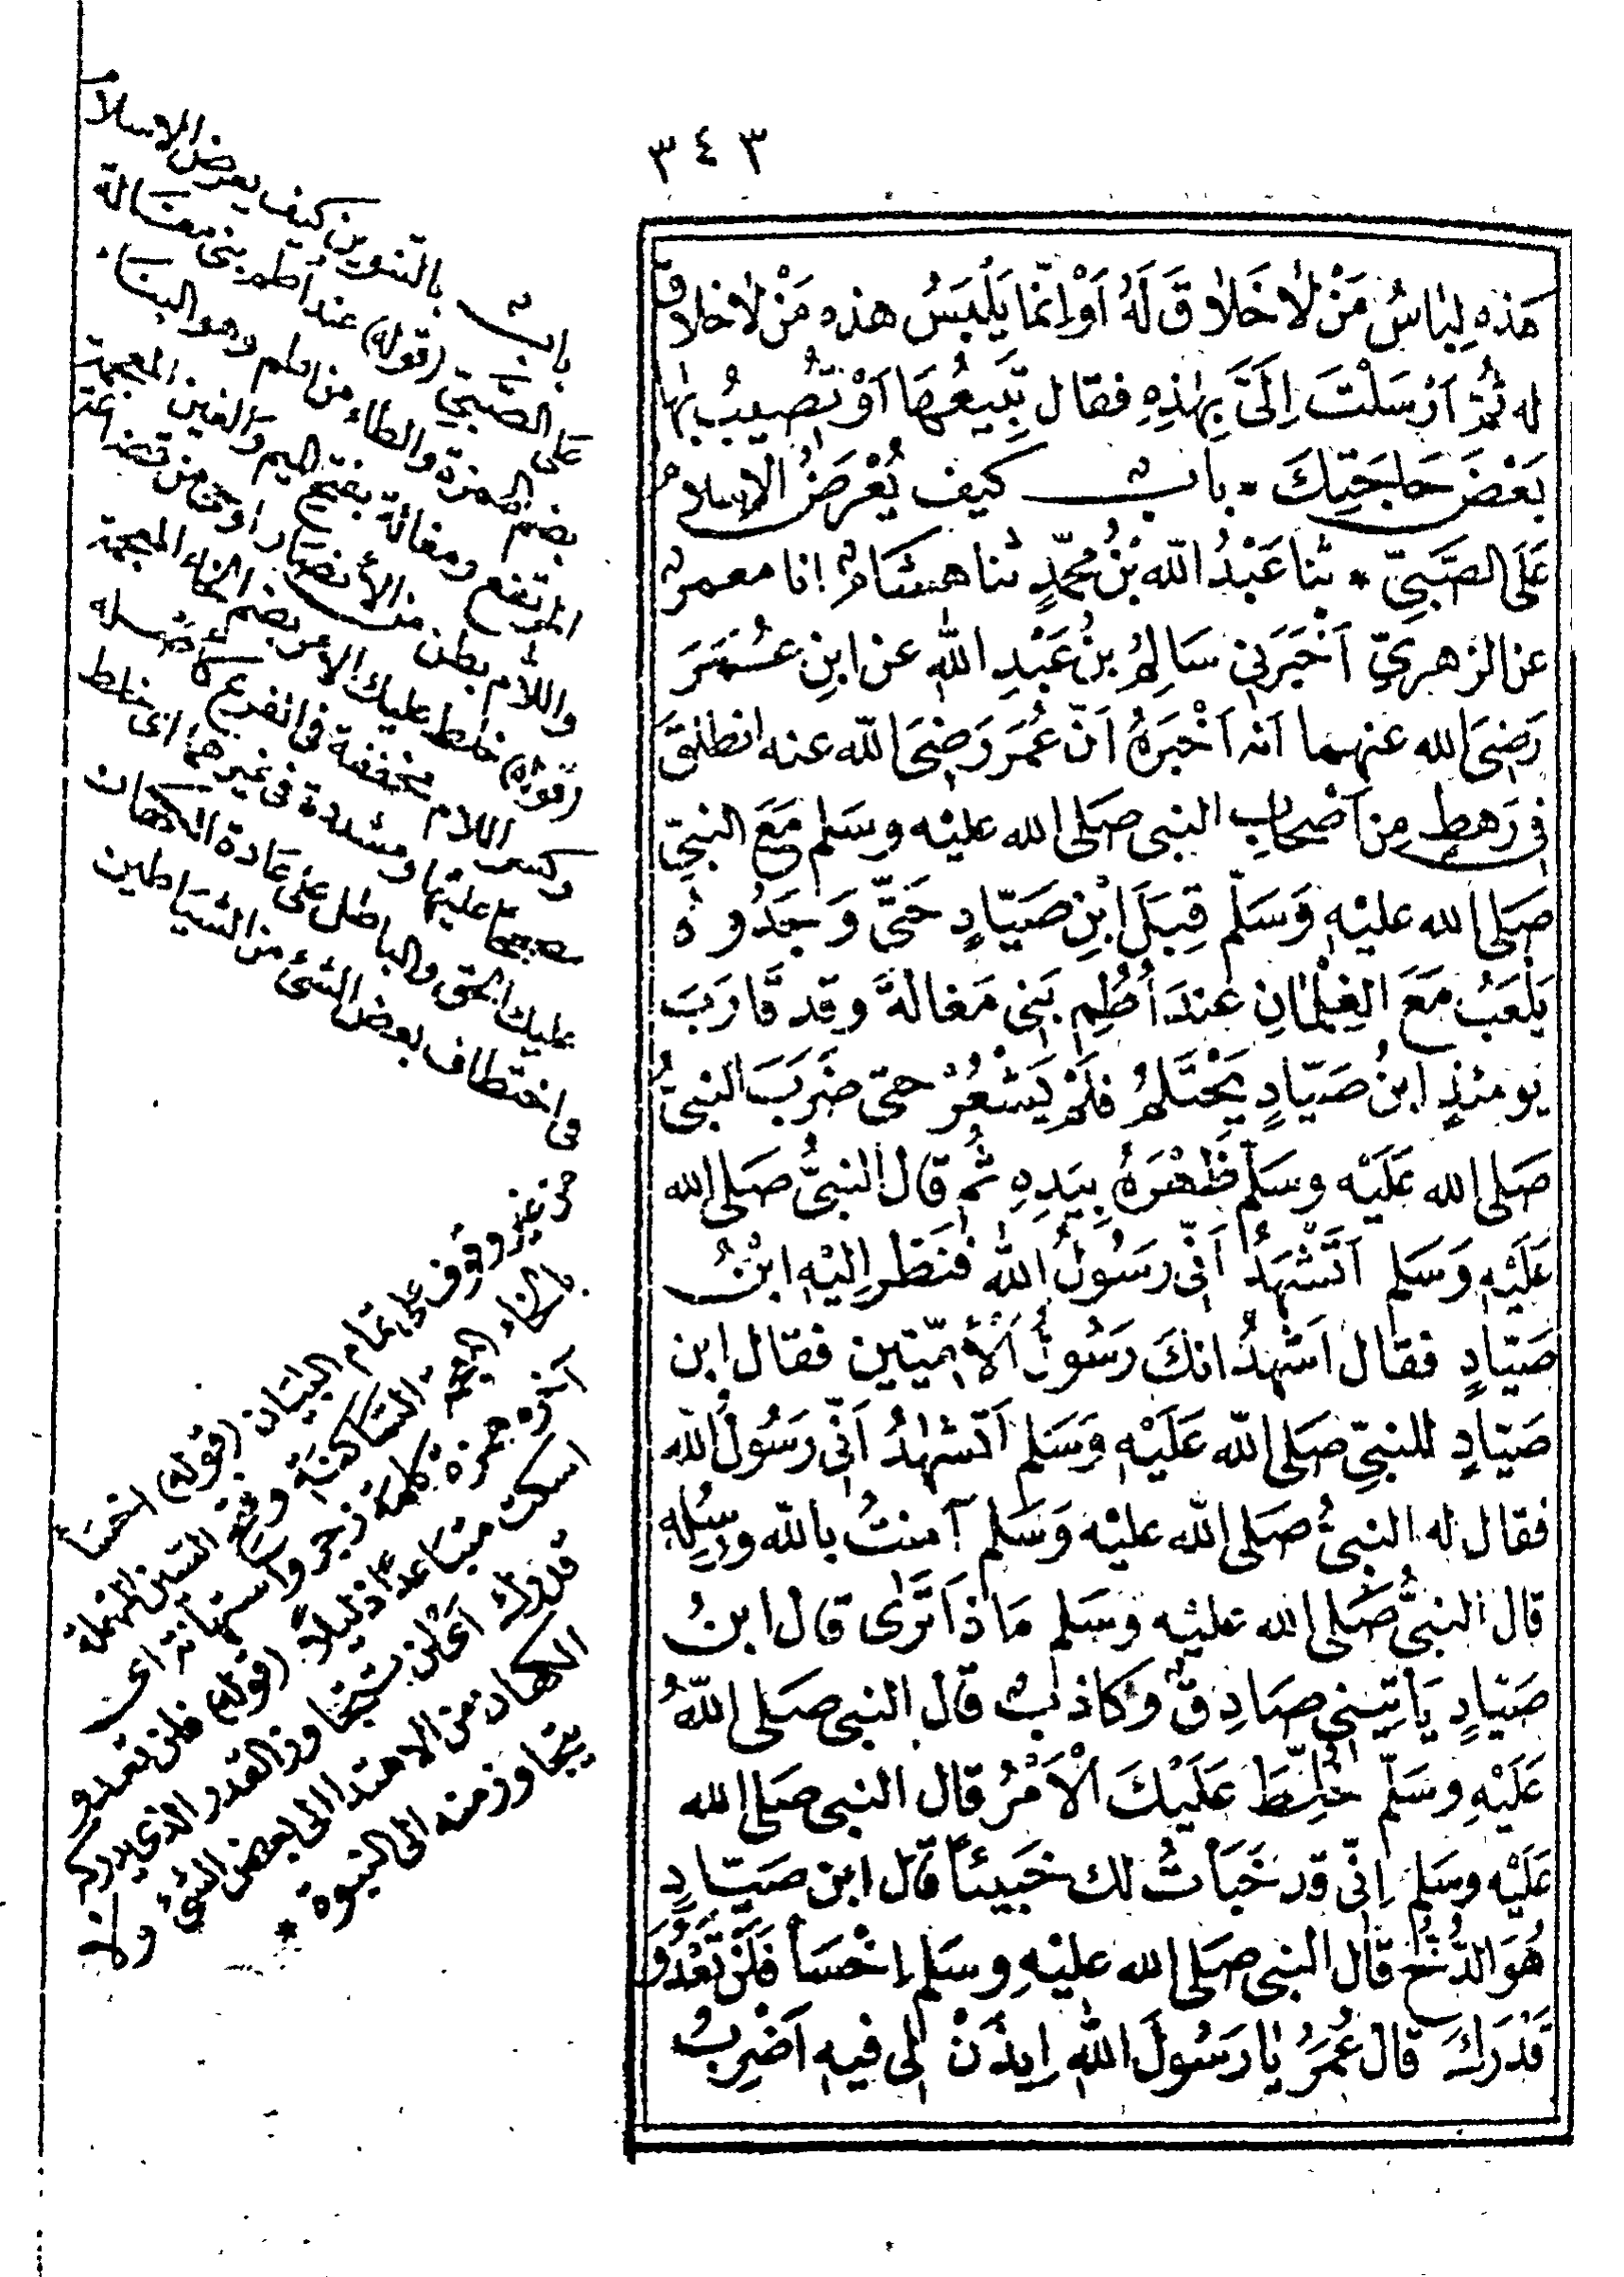 ٣٤٣
هَذِهِ لِبَاسُ مَنْ لَا خَلَاقَ لَهُ اَوْ اِنَّمَا يَلْبَسُ هذه مَنْ لَا خلاقَ
له ثُمَّ اَرْسَلْتَ اِلَىَّ بِهٰذِهِ فقال تَبِيعُهَا اَوْ تُصِيبُ بِهَا
بَعْضَ حَاجَتِكَ * بابٌ كيف يُعْرَضُ الْاِسلامُ
عَلَى الصَّبِيِّ * ثنا عَبْدُ اللّه بْنُ مُحَمَّدٍ ثنا هشَامٌ انا معمرٌ
عن الزهريِّ اَخْبَرَنِي سَالِمُ بْنُ عَبْدِ اللّٰهِ عن ابنِ عُمَرَ
رَضِىَ الله عنهما انه اَخْبَرَهُ اَنَّ عُمَرَ رَضِىَ اللّه عنه انطلقَ
فى رَهطٍ مِن اَصْحَابِ النبى صَلى الله عليْه وسَلم مَعَ النبىِّ
صَلى الله عليْهِ وَسَلَّم قِبَلَ ابْنِ صَيَّادٍ حَتَّى وَجَدُوهُ
يَلْعَبُ مَعَ الغِلْمَانِ عندَ اُطُمِ بَنِى مَغالَةَ وقد قَارَبَ
يومئذٍ ابنُ صَيّادٍ يَحْتَلِمُ فلَمْ يَشْعُرْ حتى ضَرَبَ النبىُّ
صَلى الله عَلَيْه وسَلَّم ظَهْرَهُ بِيَدِهِ ثُم قال النبىُّ صَلى الله
عَلَيْهِ وَسَلم اَتَشْهَدُ اَنِّى رَسُولُ اللّٰه فَنَظَر اِليْهِ ابْنُ
صَيّادٍ فقال اَشْهَدُ انكَ رَسُولُ الْاُمِّيّين فقال ابن
صَيّادٍ للنبىِّ صَلى اللّه عَلَيْهِ وَسَلم اَتَشهَدُ اَنِّى رَسُولُ اللّه
فقال له النبىُّ صَلى اللّه عليْه وَسَلم آمنتُ باللّه ورُسُلِهِ
قال النبىُّ صَلى الله عليْه وسَلم مَاذَا تَرٰى قال ابنُ
صَيّادٍ يَاتِينى صَادِقٌ وكاذبٌ قال النبى صَلى اللّهُ
عَلَيْهِ وسَلَّم خُلِّطَ عَلَيْكَ الْاَمْرُ قال النبى صَلى الله
عَلَيْه وسَلم اِنِّى قد خَبَأتُ لك خَبِيئاً قال ابن صَيّادٍ
هُوَ الدُّخُّ قال النبى صَلى الله عليْهِ وسَلم اِخْسَأ فَلَنْ تَعْدُوَ
قَدْرَكَ قال عُمَرُ يٰا رَسُولَ اللّٰهِ اِيذَنْ لى فيهِ اَضْرِبُ
بابٌ بالتنوين كيف يعرض الاسلام
على الصبىّ (قوله) عند اُطم بنى مغالة
بضم الهمزة والطاء من اطم وهو البناء
المرتفع ومغالة بفتح الميم والغين المعجمة
واللام بطن من الأنصار او حىّ من قضاعة
(قوله) خلط عليك الامر بضم الخاء المعجمة
وكسر اللام مخففة فى الفرع كأصله
مصححا عليها ومشددة فى غيرهما اى خلط
عليك الحق والباطل على عادة الكهان
فى اختطاف بعض الشئ من الشياطين
من غير وقوف على تمام البيان (قوله) اخسأ
بالخاء المعجمة الساكنة وفتح السين المهملة
آخره همزة كلمة زجر واستهانة اى
اسكت متباعدا ذليلا (قوله) فلن تعدو
قدرك اى لن تتجاوز القدر الذى يدركه
الكهان من الاهتداء الى بعض الشئ ولا
يتجاوز منه الى النبوة *